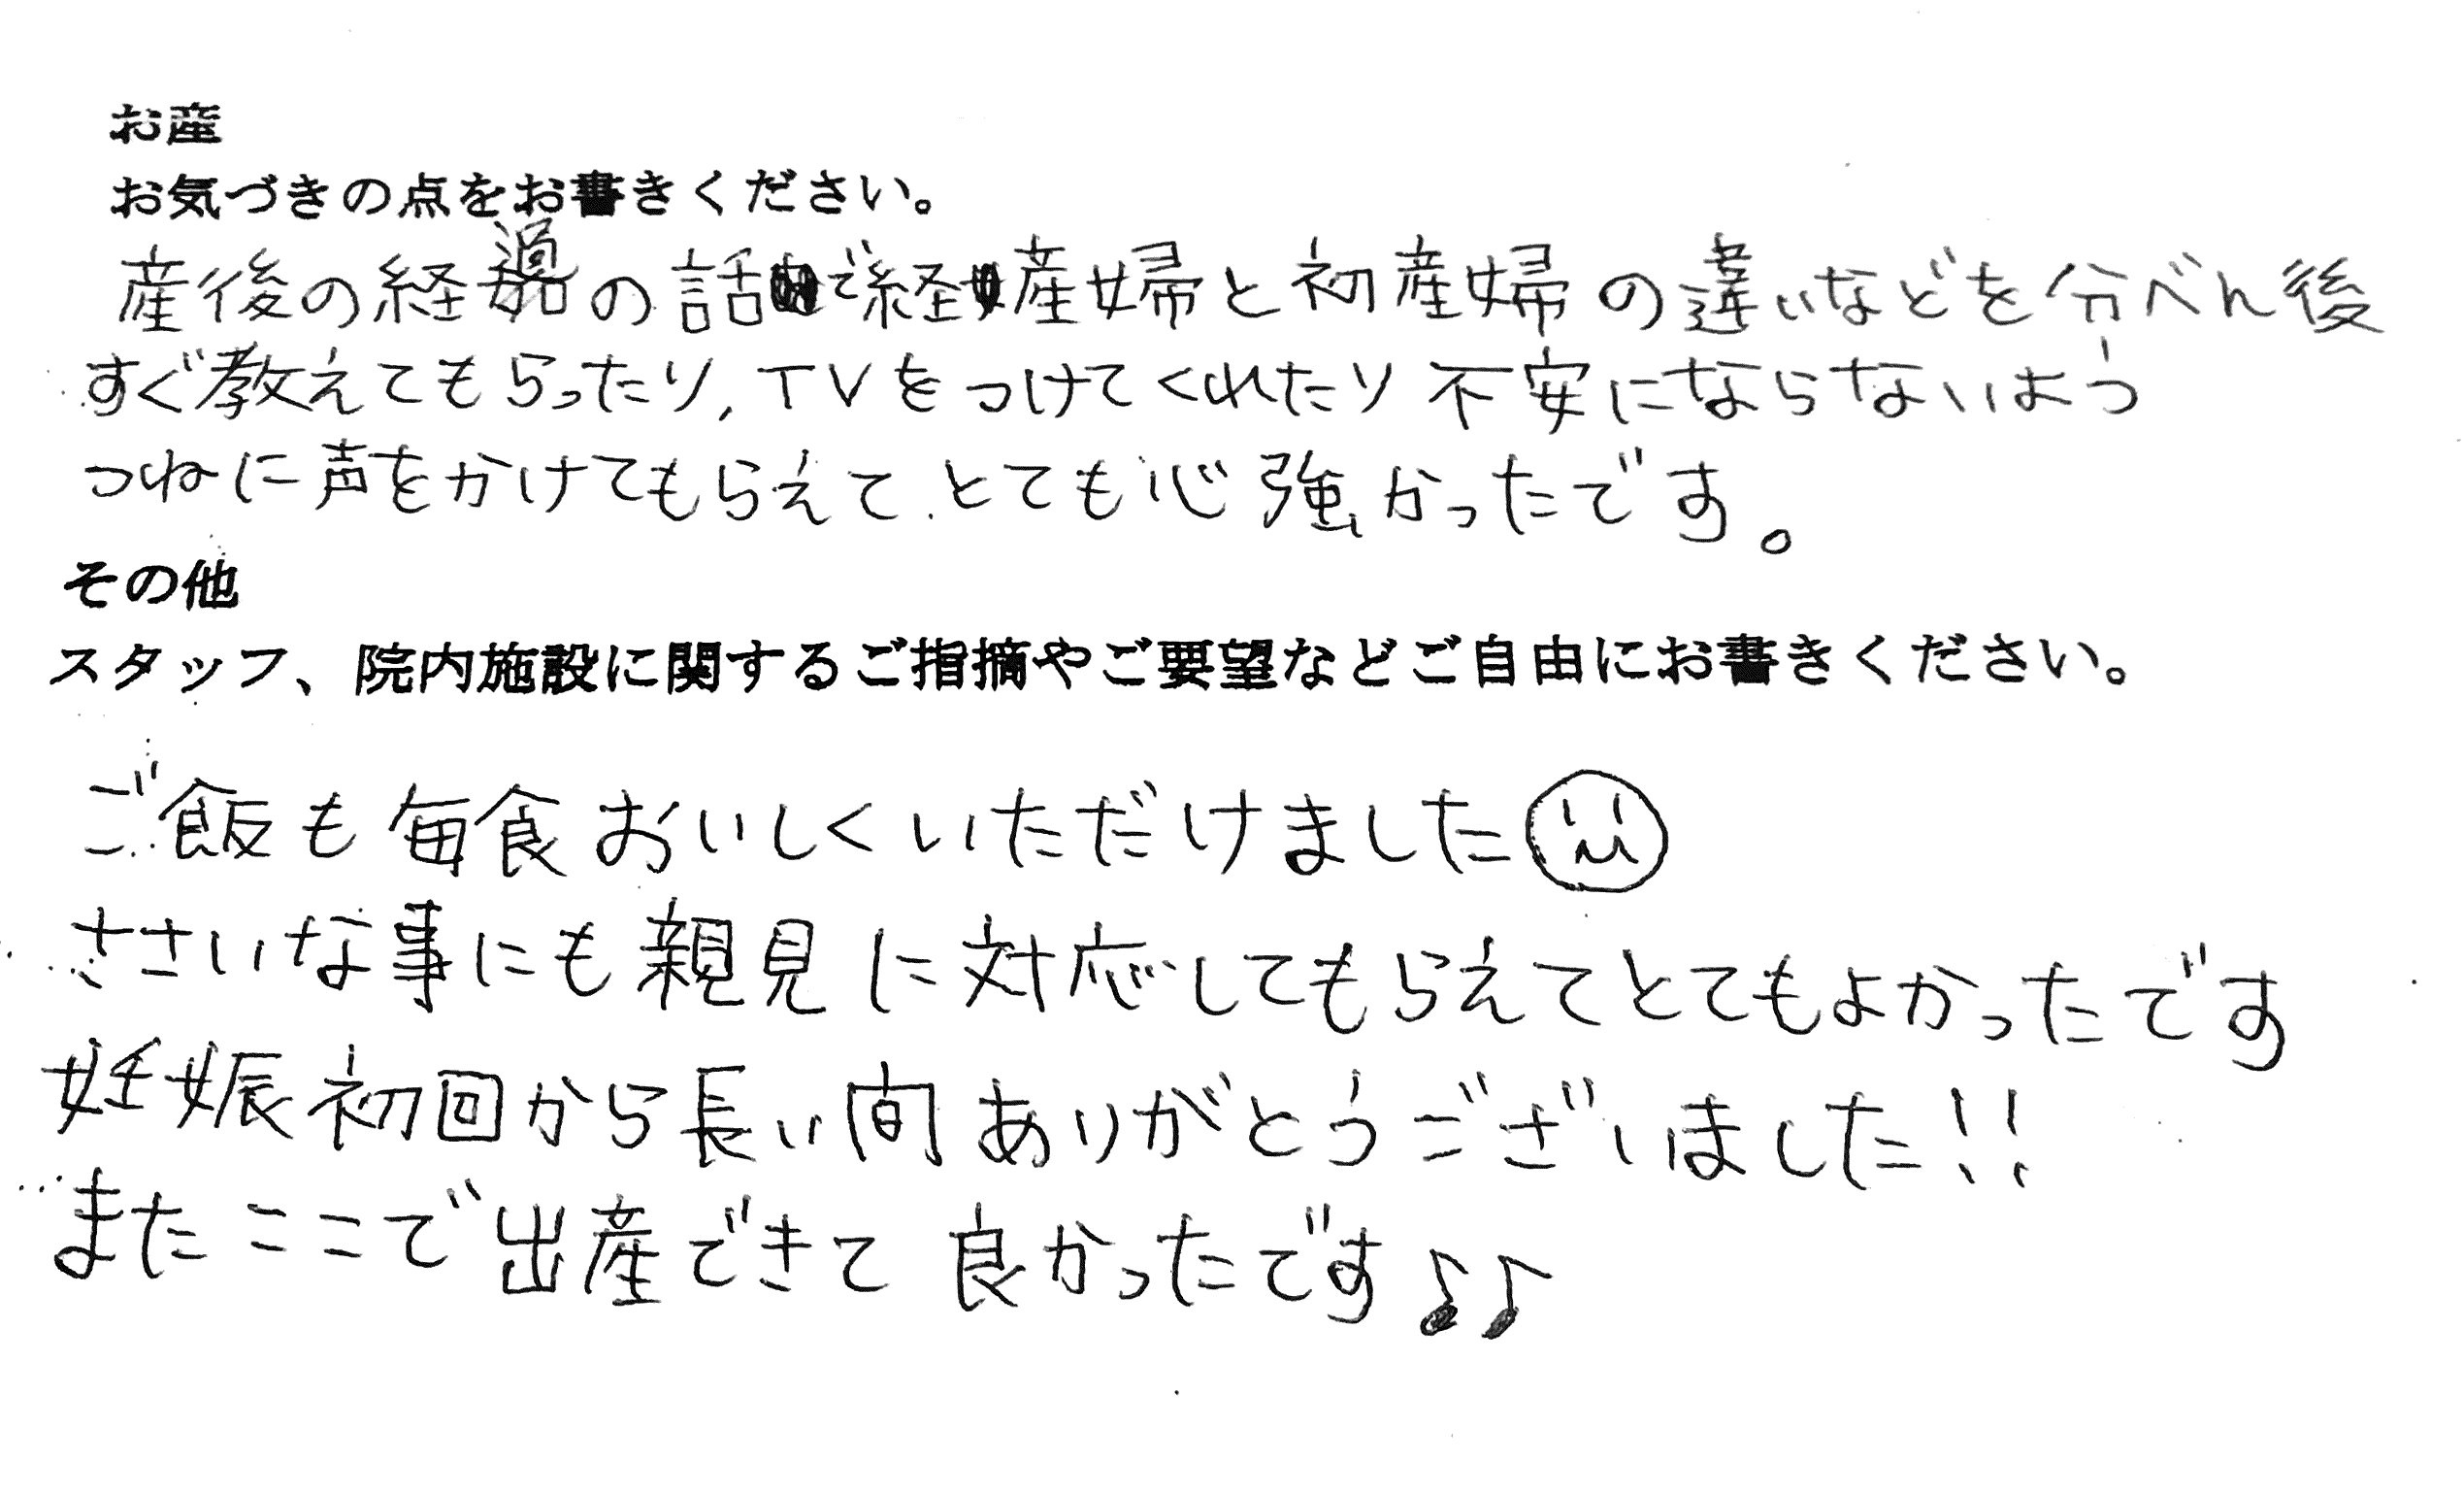 お産
お気づきの点をお書きください。
産後の経過の話で経産婦と初産婦の違いなどを分べん後
すぐ教えてもらったり、TVをつけてくれたり不安にならないよう
つねに声をかけてもらえてとても心強かったです。
その他
スタッフ、院内施設に関するご指摘やご要望などご自由にお書きください。
ご飯も毎食おいしくいただけました
ささいな事にも親見に対応してもらえてとてもよかったです
妊娠初回から長い間ありがとうございました!!
またここで出産できて良かったです♪♪